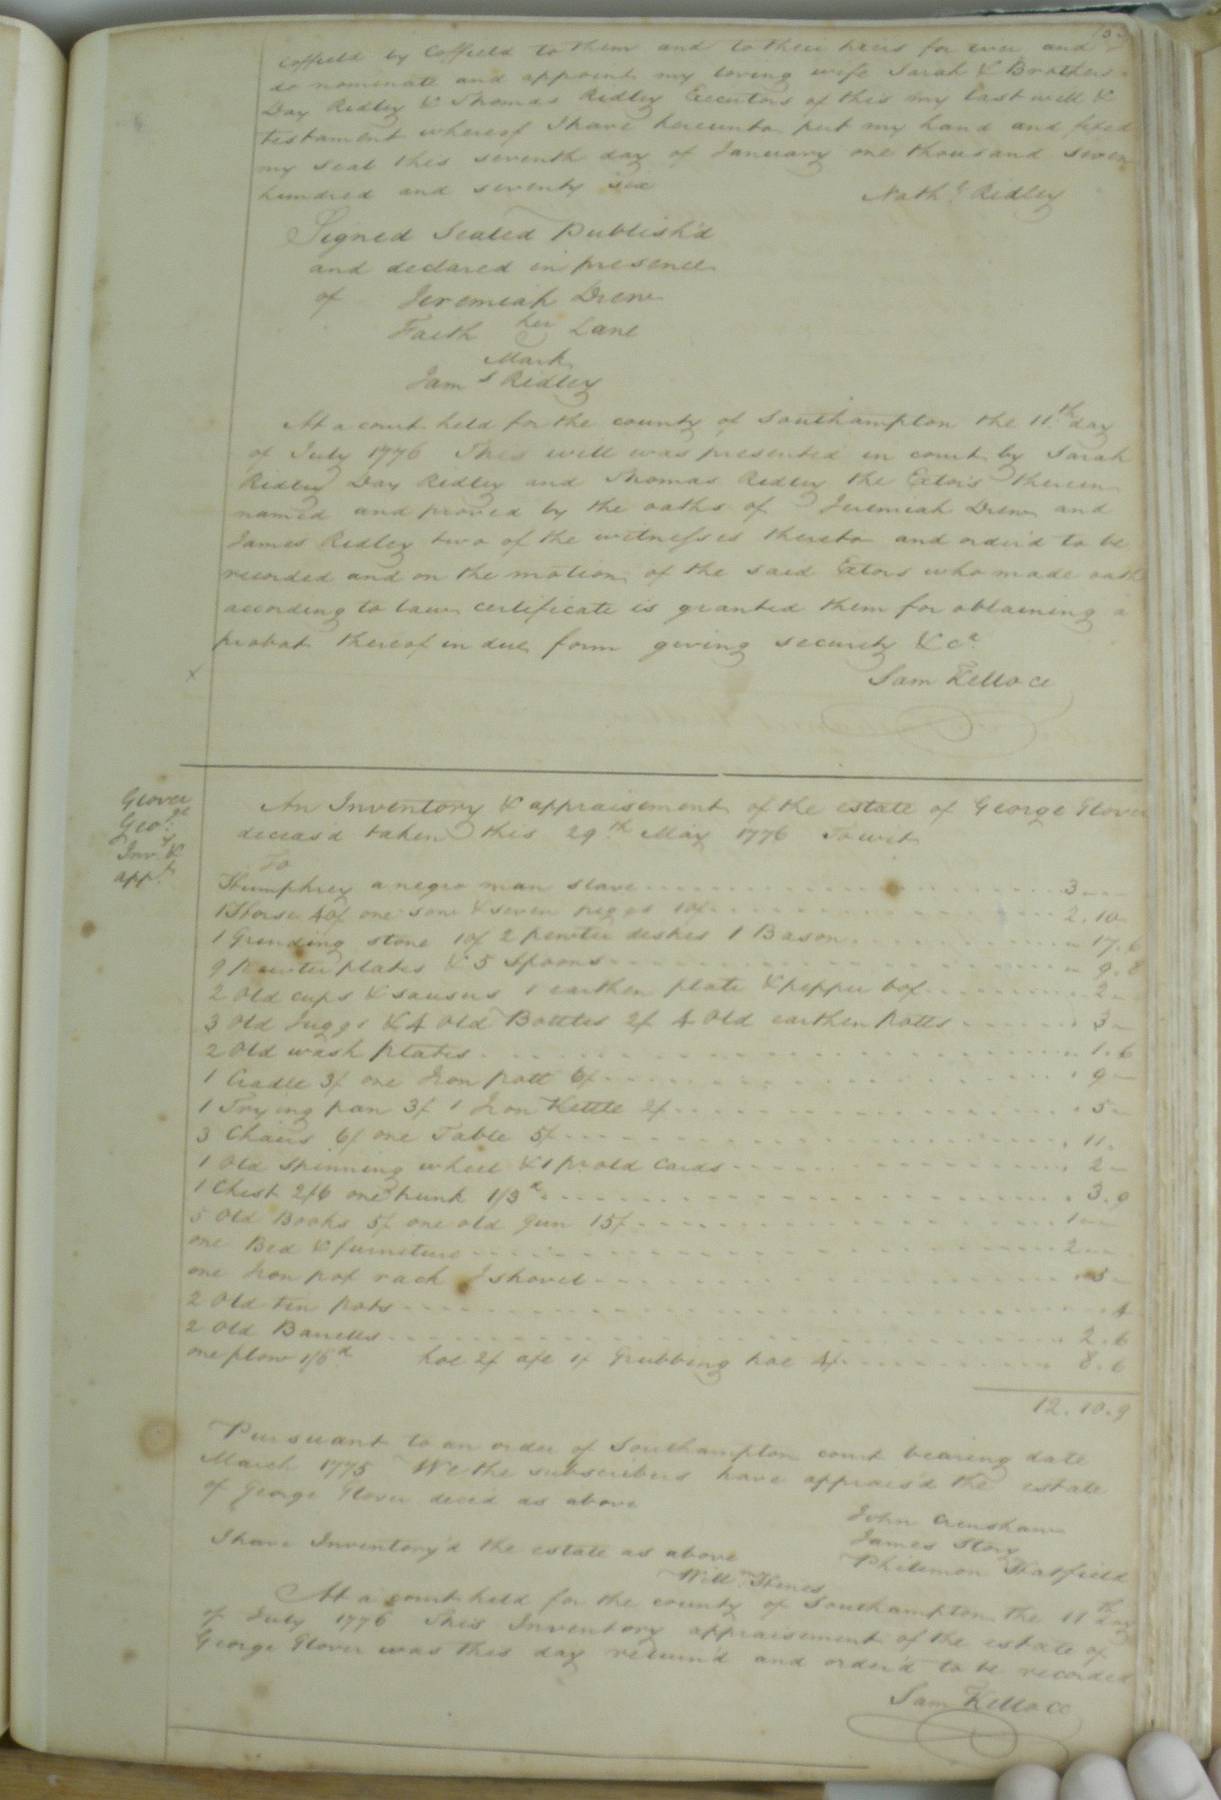 Coffield by Coffield to them and to their heirs for ever and
do nominate and appoint my loving wife Sarah & Brothers
Day Ridley & Thomas Ridley Executors of this my last will &
testament whereof I have hereunto put my hand and fixed
my seal this seventh day of January one thousand seven
hundred and seventy six
Nath.l Ridley
Signed Sealed Publish'd
and declared in presence
of Jeremiah Drew
Faith her Lane
Mark
Jam s Ridley
At a court held for the county of Southampton the 11.th day
of July 1776 This will was presented in court by Sarah
Ridley Day Ridley and Thomas Ridley the Extors therein
named and proved by the oaths of Jeremiah Drew and
James Ridley two of the witnesses thereto and order'd to be
recorded and on the motion of the said Extors who made oath
according to law certificate is granted them for obtaining a
probat thereof in due form giving security &c.a
Sam Kello cc
Glover
Geo.ge
Inv.y &
app.t
An Inventory & appraisement of the estate of George Glover
deceas'd taken this 29th May 1776 To wit
To
Humphrey a negro man slave 3 - -
1 Horse 40/ one sow & seven piggs 10/ 2.10
1 Grinding stone 10/ 2 pewter dishes 1 Bason 17.6
9 Pewter plates & 5 Spoons 9.8
2 Old cups & sausers 1 earthen plate & pepper box 2 -
3 Old Juggs & 4 Old Bottles 2/ 4 Old earthen potts 3 -
2 Old wash plates 1.6
1 Cradle 3/ one Iron pott 6/ 9 -
1 Frying pan 3/ 1 Iron Kettle 2/ 5 -
3 Chairs 6/ one Table 5/ 11.
1 Old Spinning wheel & 1 pr old Cards 2 -
1 Chest 2/6 one trunk 1/3 d 3.9
5 Old Books 5/ one old gun 15/ 1 - -
one Bed & furniture 2 - -
one Iron pot rack & shovel 5 -
2 Old tin pots 4
2 Old Barells 2.6
one plow 1/6 d hoe 2/ axe 1/ Grubbing hoe 4/ 8.6
12.10.9
Pursuant to an order of Southampton court bearing date
March 1775 We the subscribers have apprais'd the estate
of George Glover deced as above
John Crenshaw
James Story
Philemon Hatfield
I have Inventory'd the estate as above
Will.m Hines
At a court held for the county of Southampton the 11th day
of July 1776 This Inventory appraisement of the estate of
George Glover was this day return'd and order'd to be recorded
Sam Kello cc